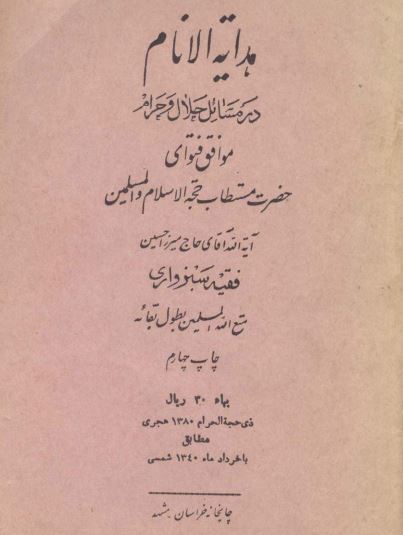 هدایة الانام
در مسائل حلال و حرام
موافق فتوای
حضرت مستطاب حجة الاسلام والمسلمین
آیة الله آقای حاج میرزا حسین
فقیه سبزواری
متع الله المسلمین بطول بقائه
چاپ چهارم
بهاء ۳۰ ریال
ذی حجة الحرام ۱۳۸۰ هجری
مطابق
با خرداد ماه ۱۳۴۰ شمسی
چاپخانه خراسان مشهد